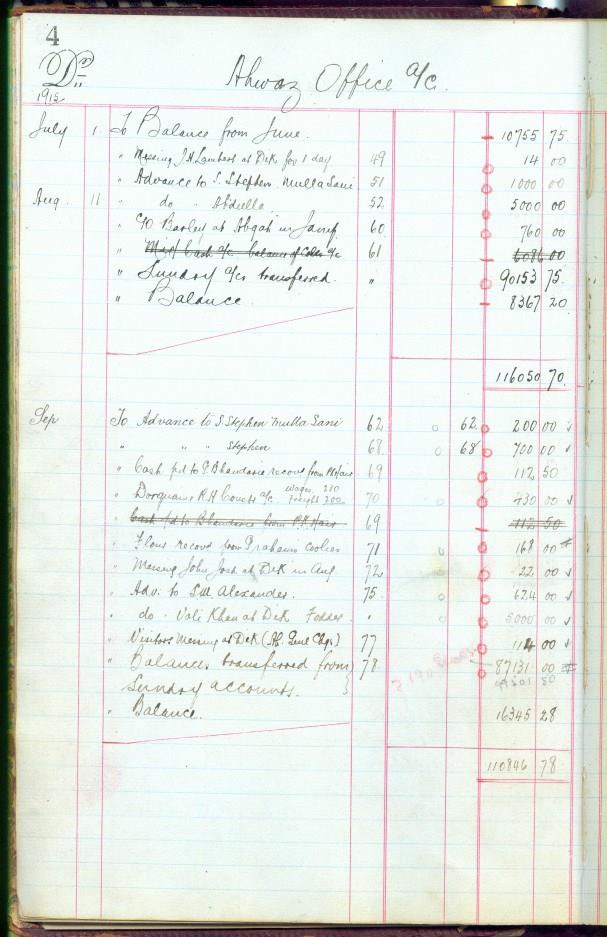 4
Dr Ahwaz Office a/c.
1915
July 1 To Balance from June. 10755 75
" Messing J.H. Lambert at Dek for 1 day 49 14 00
" Advance to S. Stephen Mulla Sani 51 1000 00
Aug. 11 " do " Abdulla 52 5000 00
" C/O Barley at Abgah in 60 760 00
" Cash a/c balance of a/c 61 6086 00
" Sundry a/cs transferred. " 90153 75
" Balance. 8367 20
116050 70
Sep To Advance to S. Stephen Mulla Sani 62 62 200 00
" " " Stephen 68 68 700 00
" Cash pd to P. Bhandarie recov from 69 112 50
wages 230
" Dorquain R.H. Coombs a/c. freight 200 70 430 00
" Cash pd to Bhandarie from 69 112 50
" Flour recovd from Grahams Coolies 71 168 00
" Messing John at Dek in Aug 72 22 00
" Adv. to Alexander. 75 624 00
" do. Vali Khan at Dek Fodder " 5000 00
" Visitors Messing at Dek ( Genl Chgs) 77 114 00
" Balances transferred from 78 87131 00
Sundry accounts. 50
" Balance. 16345 28
110846 78